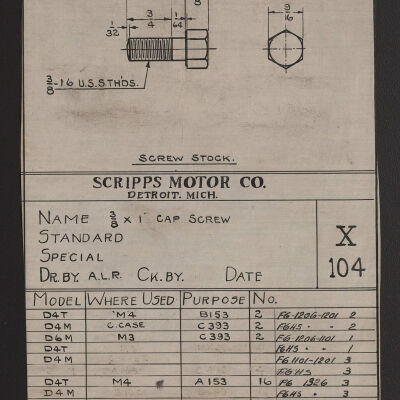 8
3/4
1/64
1/32
9/16
3/8-16 U.S.S.TH'DS.
SCREW STOCK.
SCRIPPS MOTOR CO.
DETROIT. MICH.
NAME 3/8 X 1" CAP SCREW
STANDARD
SPECIAL
DR.BY. A.L.R. CK.BY. DATE
X
104
MODEL WHERE USED PURPOSE NO.
D4T M4 B153 2 F6-1206-1201 2
D4M C.CASE C393 2 F6HS " " 2
D6M M3 C393 2 F6-1206-1101 1
D4T F6HS " " 1
D4M F6 1101-1201 3
F6HS 3
D4T M4 A153 16 F6 1326 3
D4M F6HS " 3